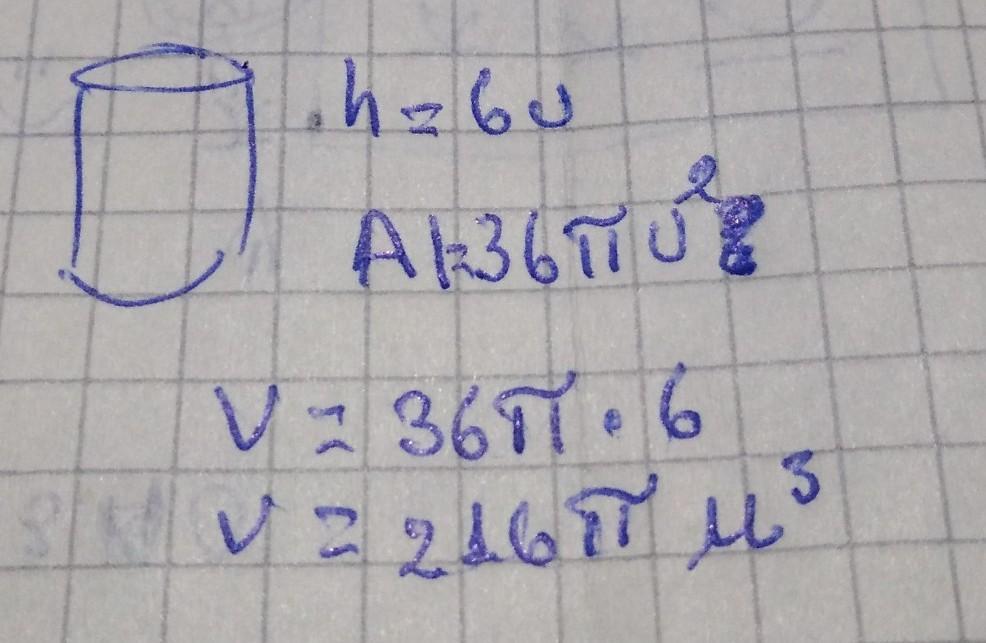 h = 6u
Al=36π u²
V = 36π · 6
V = 216π u³